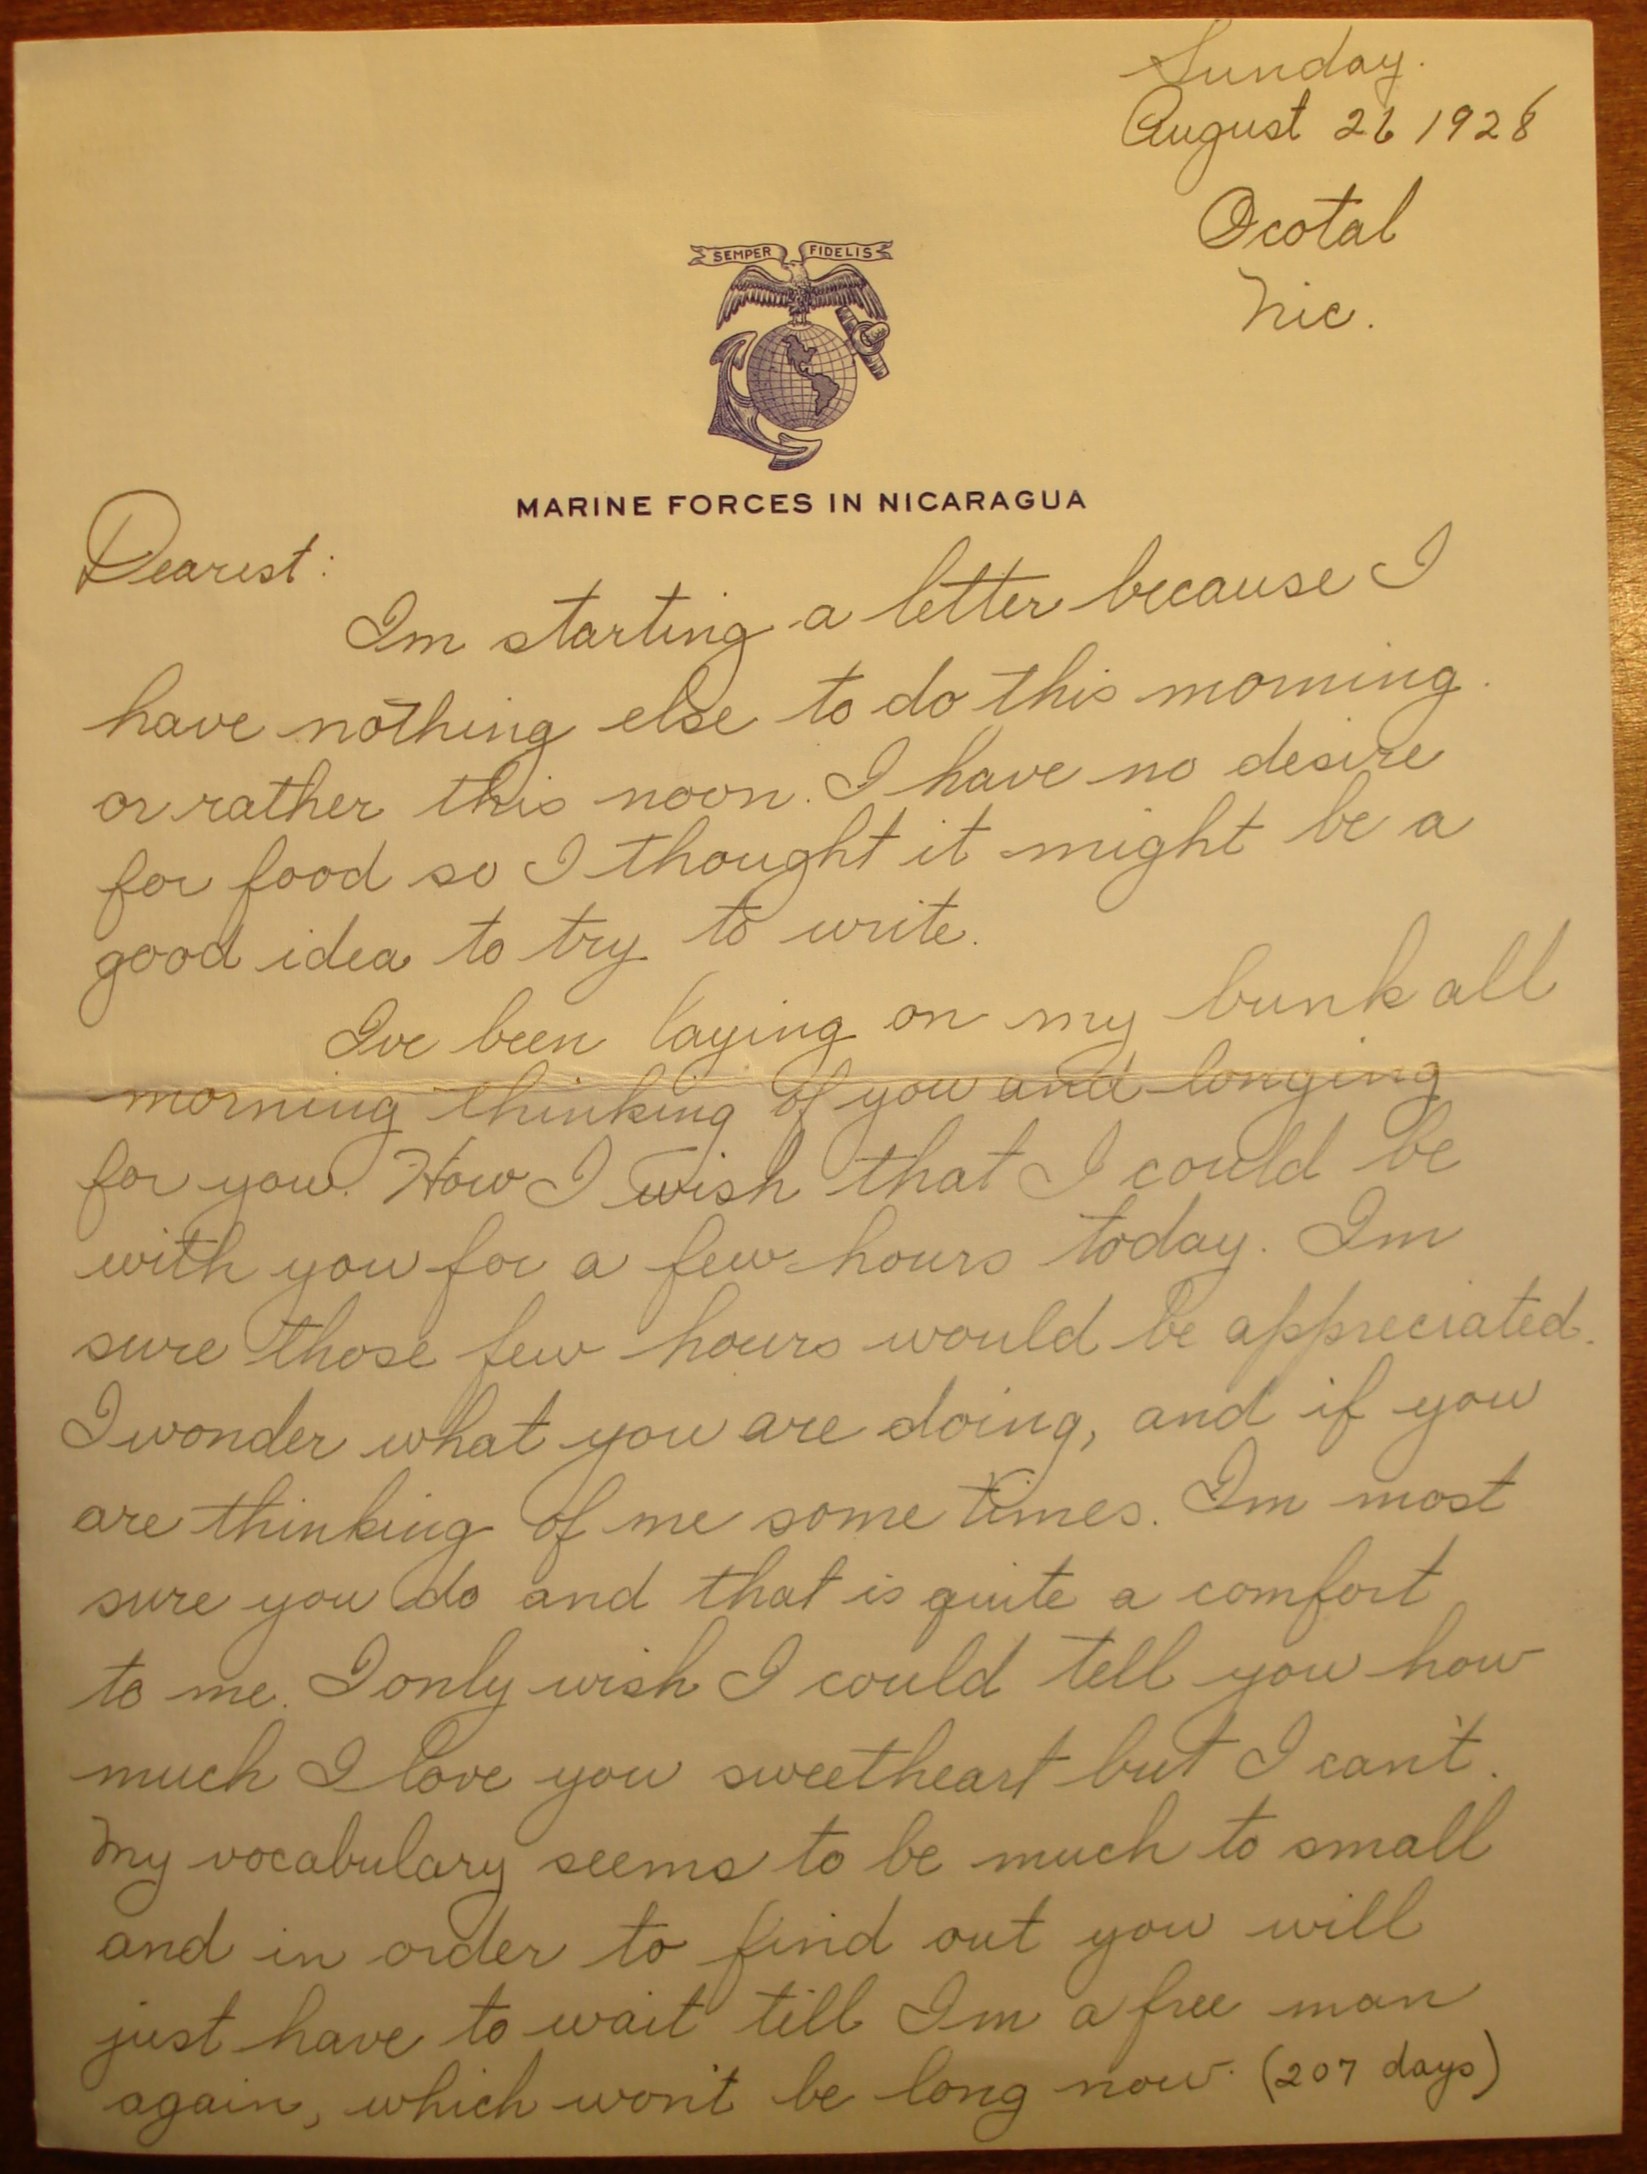 Sunday.
August 26 1928
Ocotal
Nic.
SEMPER FIDELIS
MARINE FORCES IN NICARAGUA
Dearest:
Im starting a letter because I
have nothing else to do this morning.
or rather this noon. I have no desire
for food so I thought it might be a
good idea to try to write.
Ive been laying on my bunk all
morning thinking of you and longing
for you. How I wish that I could be
with you for a few hours today. Im
sure those few hours would be appreciated.
I wonder what you are doing, and if you
are thinking of me some times. Im most
sure you do and that is quite a comfort
to me. I only wish I could tell you how
much I love you sweetheart but I can't.
My vocabulary seems to be much to small
and in order to find out you will
just have to wait till Im a free man
again, which won't be long now. (207 days)